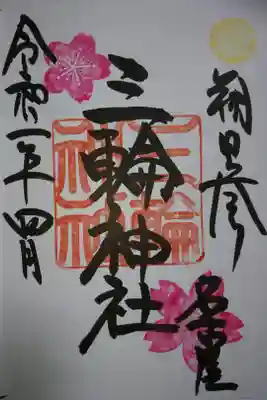 朔日参
名古屋
三輪神社
三輪神社
令和二年四月